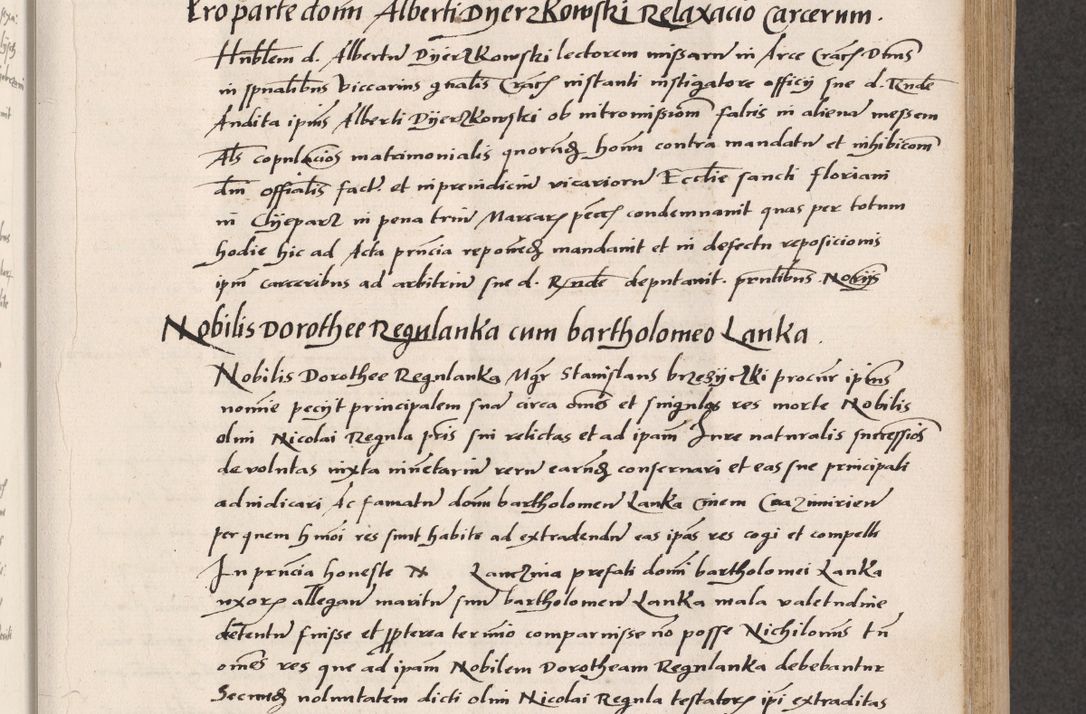 Pro parte domi Alberti Dijerzkowski Relaxacio Carcerum.
Hublem d. Albertu Dijerzkowski lectorem missaru in Arce Crac Dnus
in spualibus Viccarius gnalis Crac instanti instigatore officij sue d. Rnde
Audita ipius Alberti Dijerzkowski ob intromissiom falcis in aliena messem
Als copulacios matrimonialis quorundam homi contra mandatu et inhibicom
dni officialis fact. et in preiudiciu vicarioru Ecclie sancti floriani
in Clijeparz in pena triu Marcar pecc condemnavit quas per totum
hodie hic ad Acta pncia reponend mandavit et in defectu reposicionis
ipm carceribus ad arbitriu sue d. Rnde deputavit. pntibus Notrijs
Nobilis Dorothee Regulanka cum bartholomeo Lanka.
Nobilis Dorothee Regulanka Mgr Stanislaus brzezijczki procur ipius
nomie pecijt principalem sua circa omes et singulas res morte Nobilis
olim Nicolai Regula pris sui relictas et ad ipam Jure naturalis successios
devolutas iuxta inuetariu reru earund conservari et eas sue principali
adiudicari Ac famatu domi bartholomeu Lanka Ciuem Cazimirien
per quem hmoi res sunt habite ad extradendu eas ipas res cogi et compelli
In pncia honeste N Lanczina prefati domi bartholomei Lanka
uxor allegan maritu suu bartholomeu Lanka mala valetudine
detentu fuisse et ppterea termio comparuisse no posse Nichilomus tn
omes res que ad ipam Nobilem Dorotheam Regulanka debebantur
Secund voluntatem dicti olim Nicolai Regula testator ipi extraditas